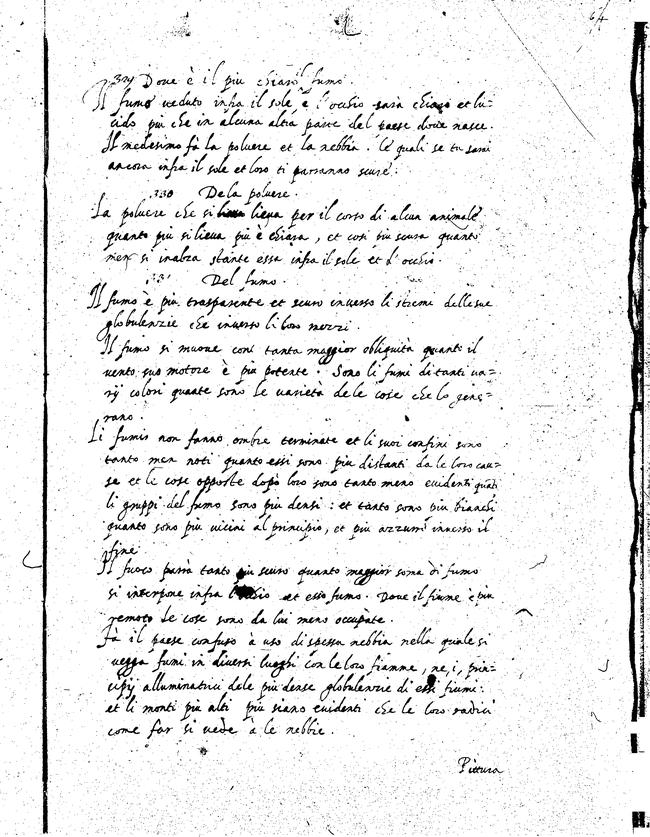 64
329 Dove è il più chiaro fumo.
Il fumo veduto infra il sole e l'occhio sara chiaro et lu=
cido più che in alcuna altra parte del paese dove nasce.
Il medesimo fà la polvere et la nebbia. le quali se tu sarai
ancora infra il sole et loro ti parranno scure.
330 De la polvere.
La polvere che si lieva per il corso di alcun animale
quanto più si lieva più è chiara, et cosi più scura quanto
men si inalza stante essa infra il sole et l'occhio.
331 Del fumo.
Il fumo è più trasparente et scuro inverso li stremi delle sue
globulenzie che inverso li loro mezzi.
Il fumo si muove con tanta maggior obliquità quanti il
vento suo motore è più potente. Sono li fumi di tanti va=
rij colori quante sono le varietà dele cose che lo gene=
rano.
Li fumi non fanno ombre terminate et li suoi confini sono
tanto men noti quanto essi sono più distanti da le loro cau=
se et le cose opposte dopò loro sono tanto meno evidenti quati
li gruppi del fumo sono più densi: et tanto sono più bianchi
quanto sono più vicini al principio, et più azzurri inverso il
fine.
Il fuoco parrà tanto più scuro quanto maggior soma di fumo
si interpone infra l'ochio et esso fumo. Dove il fiume è più
remoto le cose sono da lui meno occupate.
Fà il paese confuso à uso di spessa nebbia nella quale si
vegga fumi in diversi luoghi con le loro fiamme, ne, i, prin=
cipij alluminatrici dele più dense globulenzie di essi fiumi:
et li monti più alti più siano evidenti che le loro radici
come far si vede à le nebbie.
Pittura